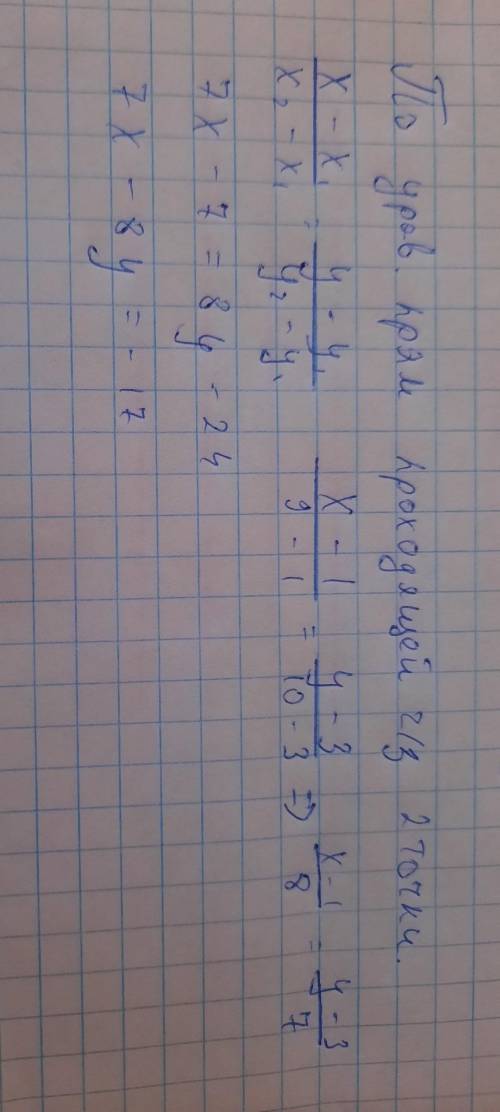 По урав. прям проходящей ч/з 2 точки.
x - x₁ / x₂ - x₁ = y - y₁ / y₂ - y₁   x - 1 / 9 - 1 = y - 3 / 10 - 3 => x - 1 / 8 = y - 3 / 7
7x - 7 = 8y - 24
7x - 8y = - 17